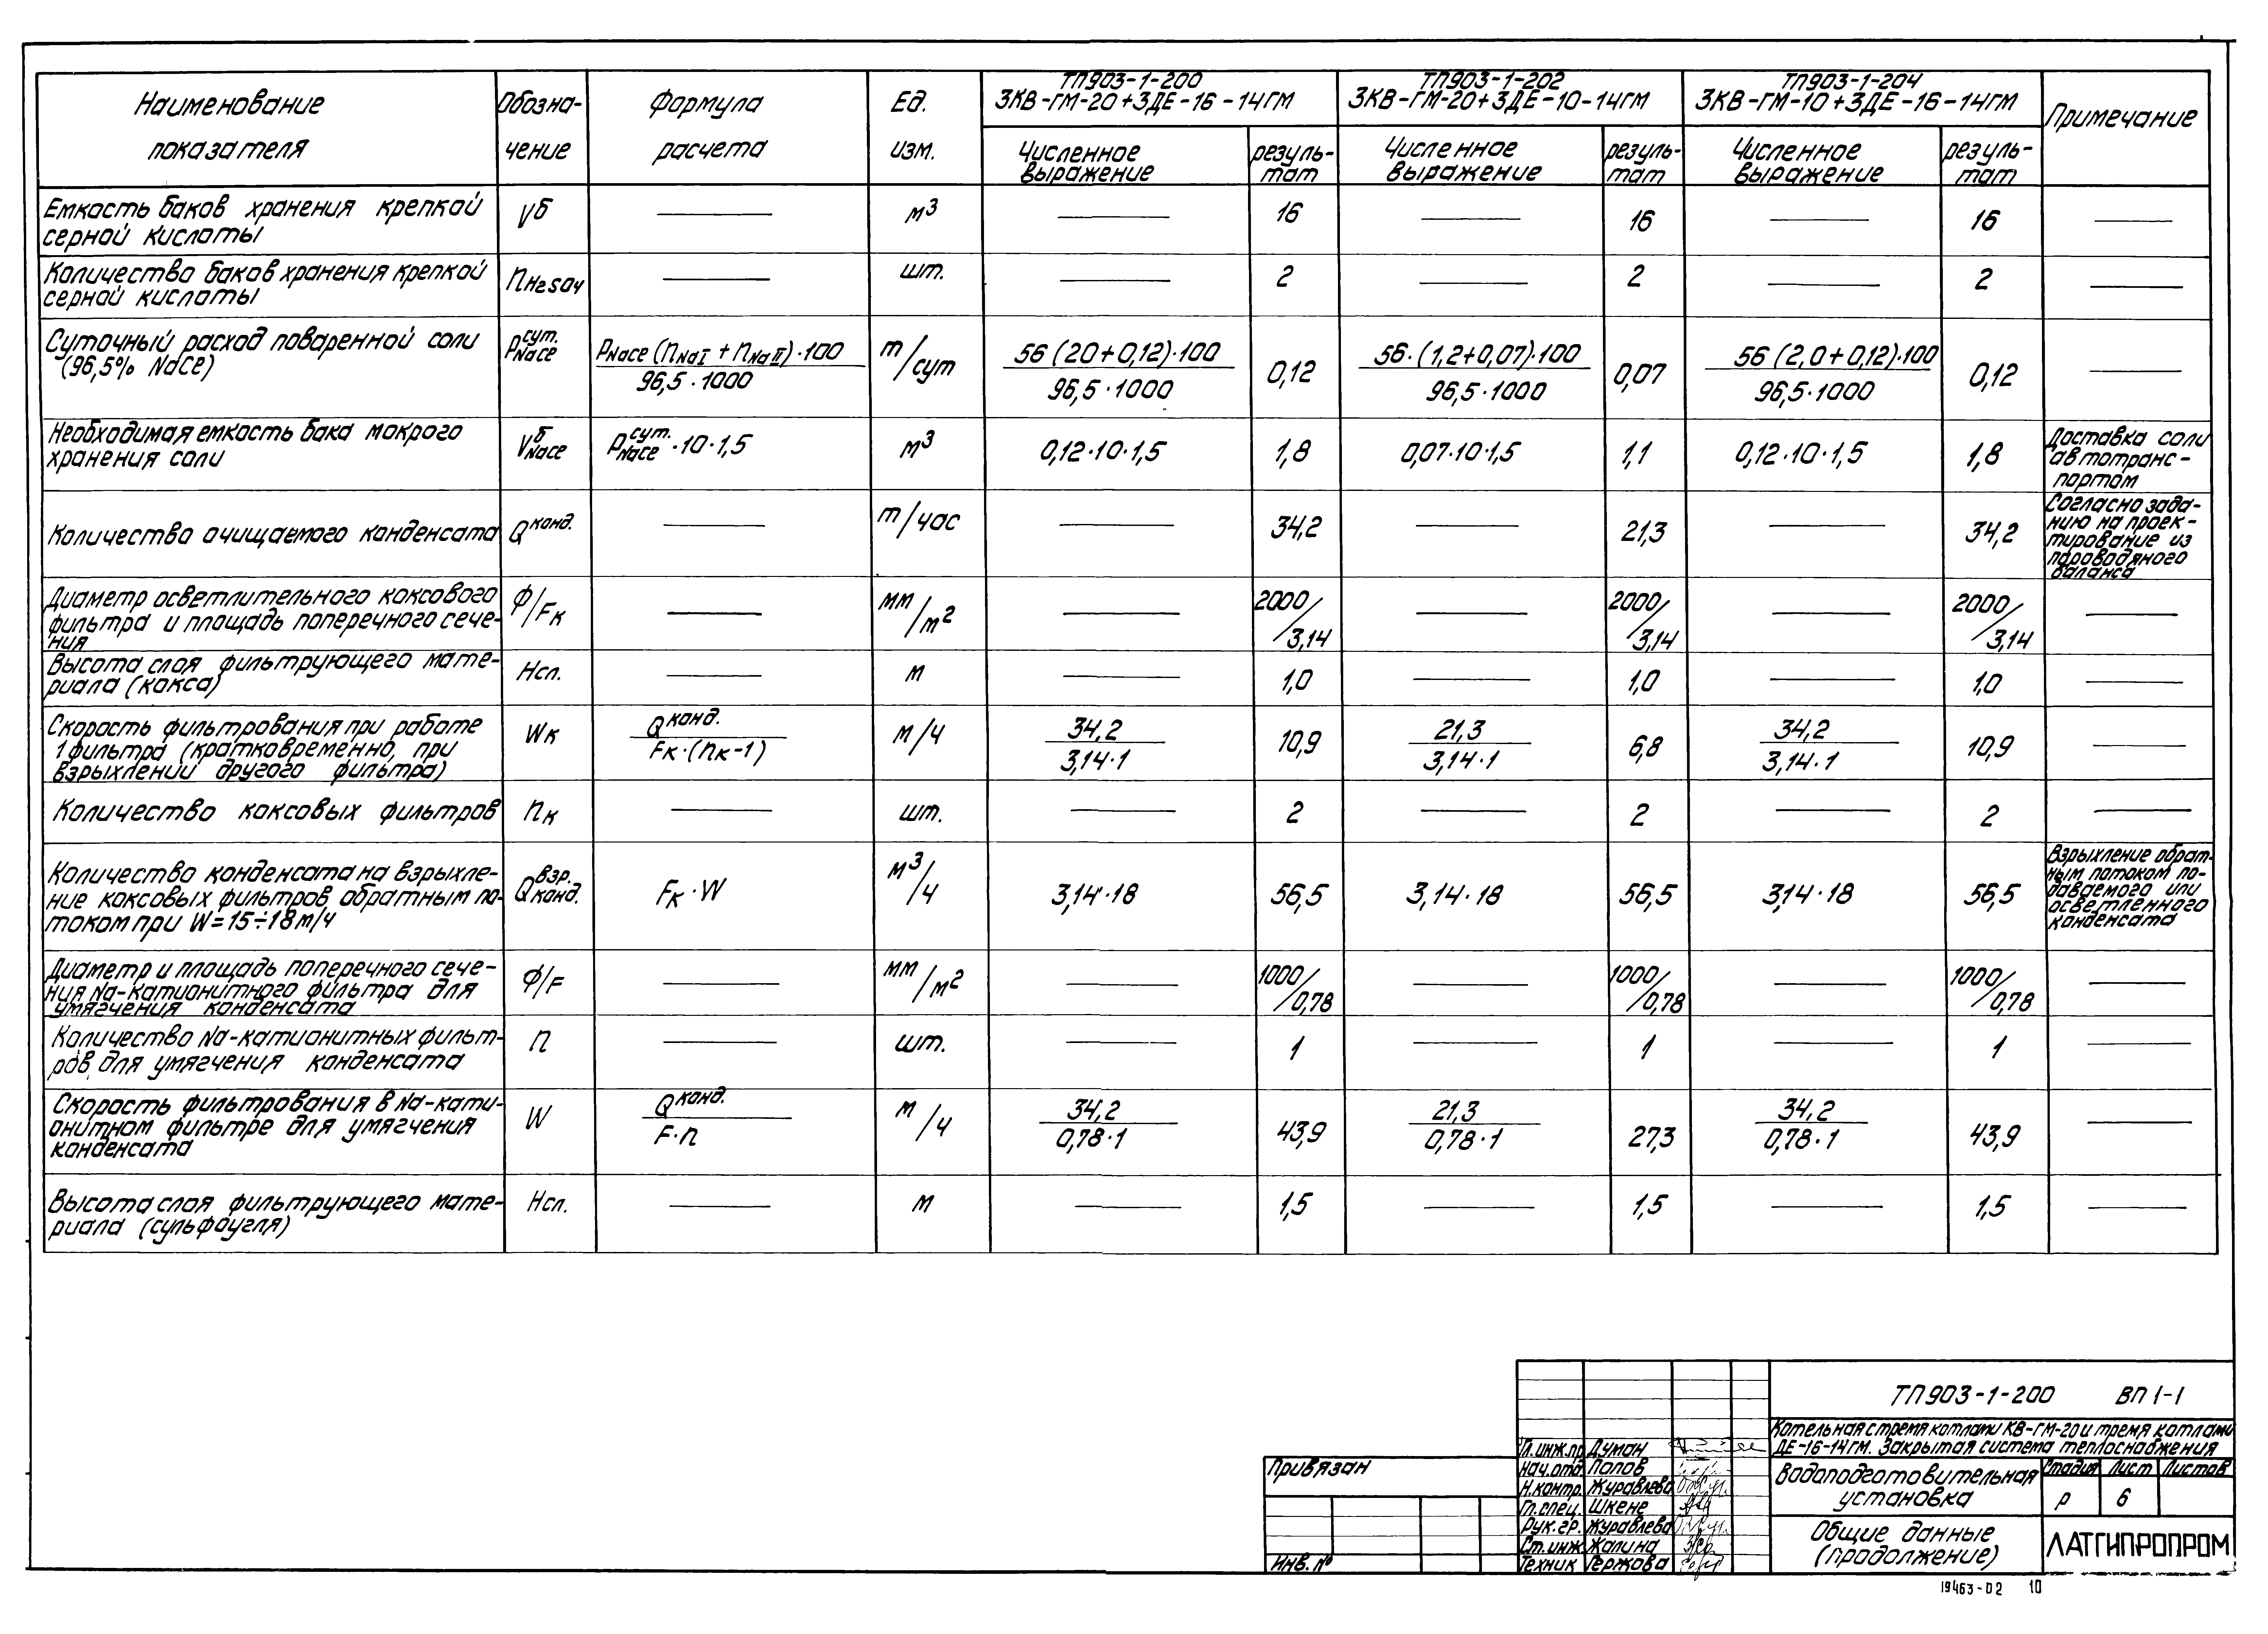 Наименование показателя
Обозна-чение
Формула расчета
Ед. изм.
ТП903-1-200
3КВ-ГМ-20+3ДЕ-16-14ГМ
ТП903-1-202
3КВ-ГМ-20+3ДЕ-10-14ГМ
ТП903-1-204
3КВ-ГМ-10+3ДЕ-16-14ГМ
Примечание
Численное выражение
резуль-тат
Численное выражение
резуль-тат
Численное выражение
резуль-тат
Емкость баков хранения крепкой
серной кислоты
Vб — м3 — 16 — 16 — 16 —
Количество баков хранения крепкой
серной кислоты
nH2SO4 — шт. — 2 — 2 — 2 —
Суточный расход поваренной соли
(96,5% NaCe)
Pсут.NaCe
PNaCe (nNaI + nNaII)·100
96,5·1000
т/сут
56 (20+0,12)·100
96,5·1000
0,12
56·(1,2+0,07)·100
96,5·1000
0,07
56 (2,0+0,12)·100
96,5·1000
0,12
—
Необходимая емкость бака мокрого
хранения соли
VбNaCe
Pсут.NaCe·10·1,5
м3
0,12·10·1,5
1,8
0,07·10·1,5
1,1
0,12·10·1,5
1,8
Доставка соли
автотранс-
портом
Количество очищаемого конденсата
Qконд. — т/час — 34,2 — 21,3 — 34,2
Согласно зада-
нию на проек-
тирование из
пароводяного
баланса
Диаметр осветлительного коксового
фильтра и площадь поперечного сече-
ния
Ф/Fк — мм/м2 — 2000/3,14 — 2000/3,14 — 2000/3,14 —
Высота слоя фильтрующего мате-
риала (кокса)
Нсл. — м — 1,0 — 1,0 — 1,0 —
Скорость фильтрования при работе
1 фильтра (кратковременно, при
взрыхлении другого фильтра)
Wк
Qконд.
Fк·(nк-1)
м/ч
34,2
3,14·1
10,9
21,3
3,14·1
6,8
34,2
3,14·1
10,9
—
Количество коксовых фильтров
nк — шт. — 2 — 2 — 2 —
Количество конденсата на взрыхле-
ние коксовых фильтров обратным по-
током при W=15÷18м/ч
Qвзр.конд.
Fк·W
м3/ч
3,14·18
56,5
3,14·18
56,5
3,14·18
56,5
Взрыхление обрат-
ным потоком по-
даваемого или
осветленного
конденсата
Диаметр и площадь поперечного сече-
ния Na-катионитного фильтра для
умягчения конденсата
Ф/F — мм/м2 — 1000/0,78 — 1000/0,78 — 1000/0,78 —
Количество Na-катионитных фильт-
ров для умягчения конденсата
n — шт. — 1 — 1 — 1 —
Скорость фильтрования в Na-кати-
онитном фильтре для умягчения
конденсата
W
Qконд.
F·n
м/ч
34,2
0,78·1
43,9
21,3
0,78·1
27,3
34,2
0,78·1
43,9
—
Высота слоя фильтрующего мате-
риала (сульфоугля)
Нсл. — м — 1,5 — 1,5 — 1,5 —
ТП903-1-200 ВП 1-1
Котельная с тремя котлами КВ-ГМ-20 и тремя котлами
ДЕ-16-14ГМ. Закрытая система теплоснабжения
Привязан
Инв. №
Гл.инж.пр Думан
Нач.отд Попов
Н.контр. Журавлева
Гл.спец. Шкене
Рук.гр. Журавлева
Ст.инж Жалина
Техник Гержова
Водоподготовительная
установка
Стадия Лист Листов
р 6
Общие данные
(продолжение)
ЛАТГИПРОПРОМ
19463-02 10